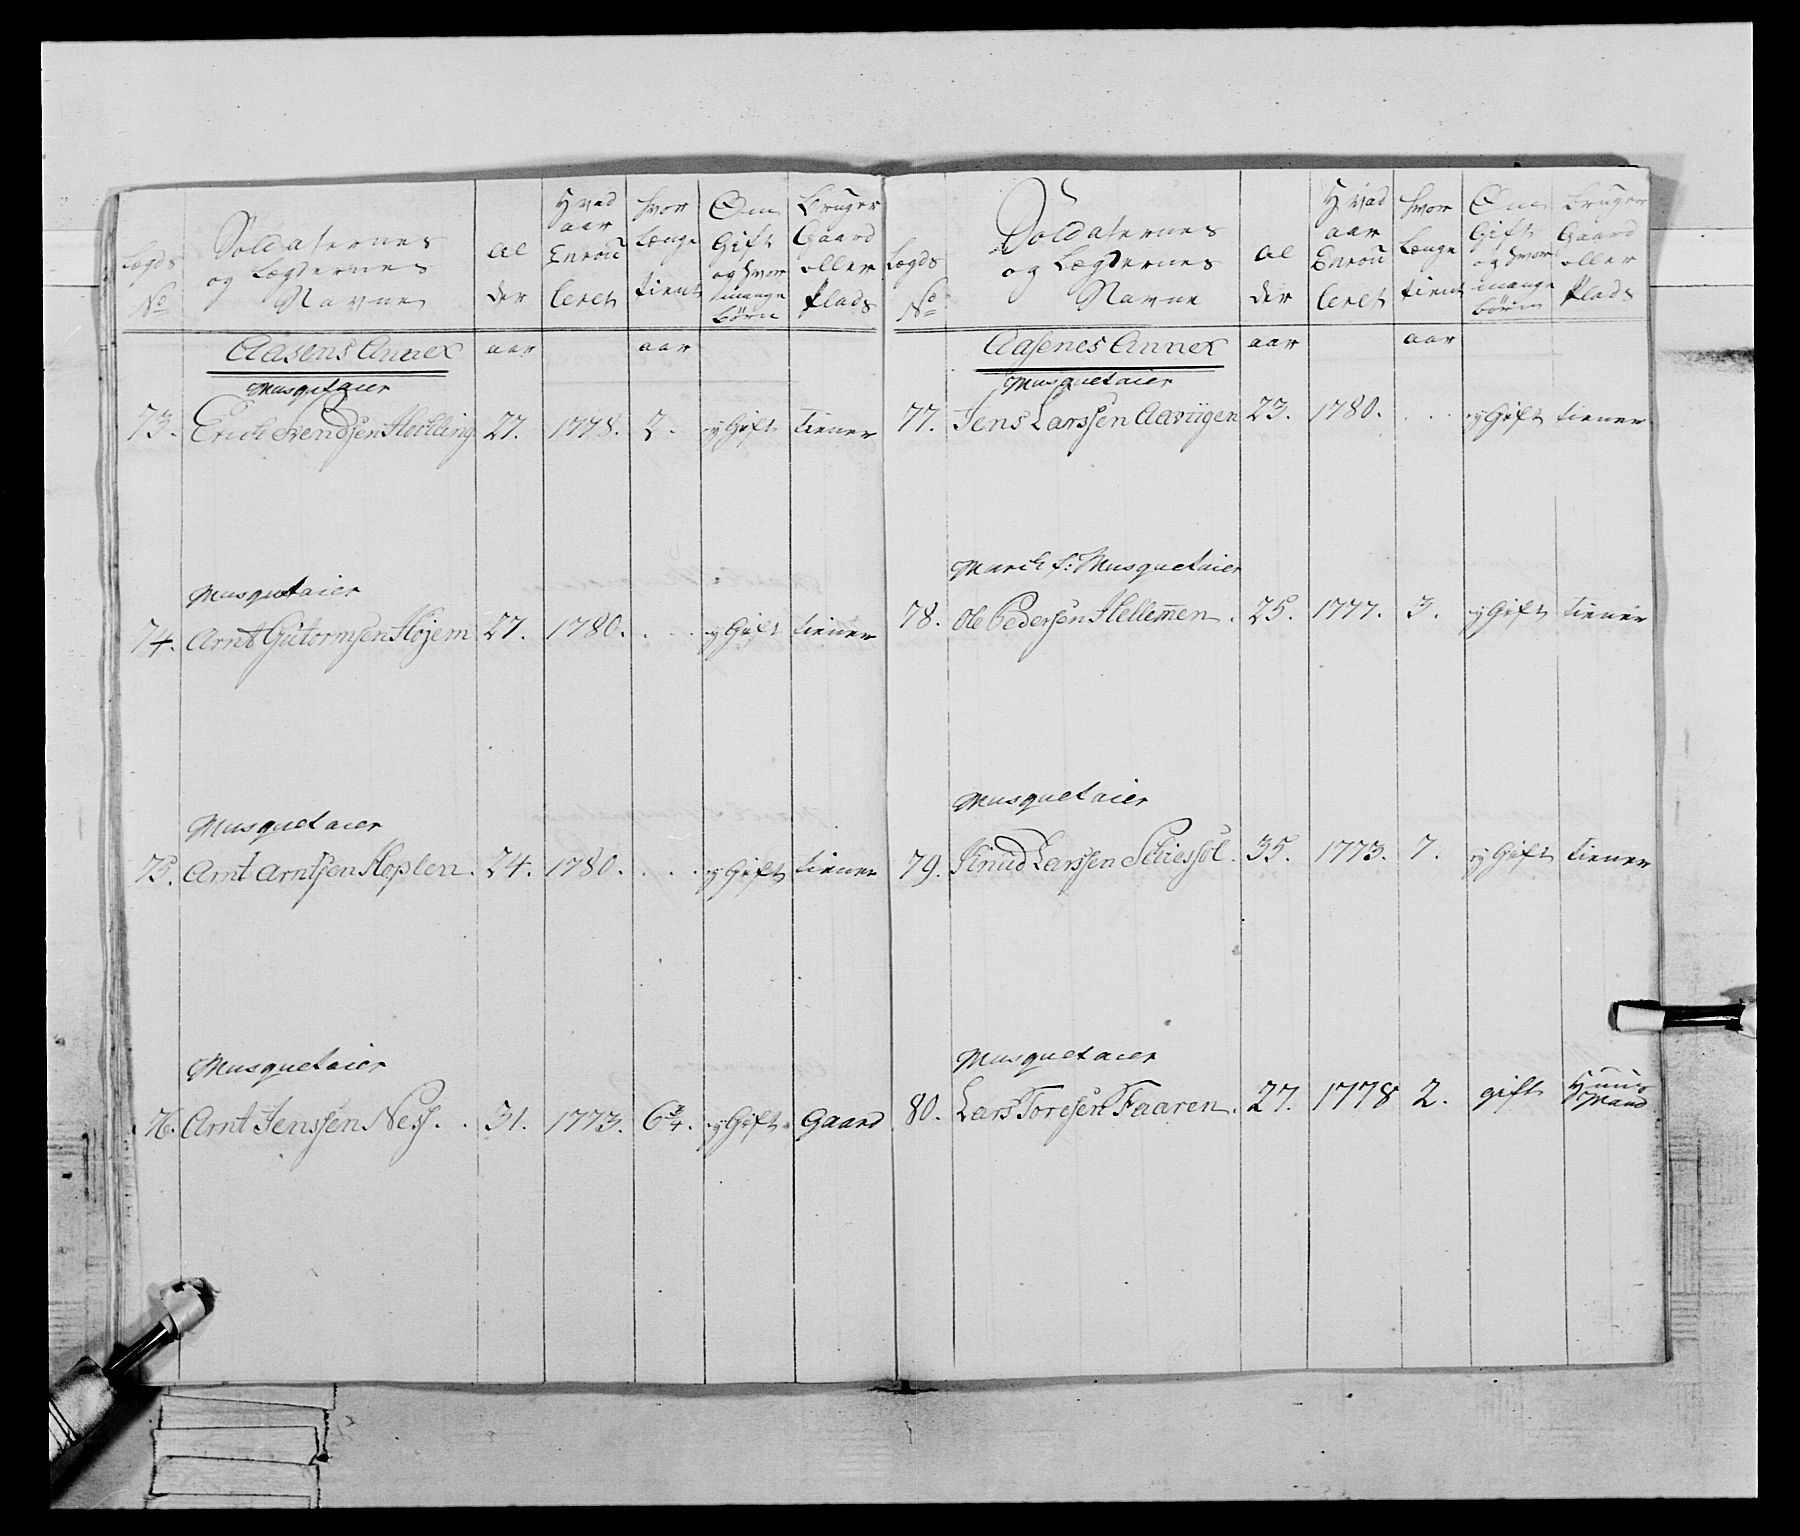 Lægds No
Soldaternes og Lægdernes Navne
Al der
Hvad aar Enrou leret
hvor Længe tient
Om Gift og hvor mange børn
Bruger Gaard eller Plads
Aasens Annex aar aar
Musquetaier
73. Erich Svendsen 27. 1778. 2. ey Gift tiener
Musquetaier
74. Arnt Gutormsen Højem 27. 1780. . . . ey Gift tiener
Musquetaier
75. Arnt Arntsen Hoplen. 24. 1780. . . . ey Gift tiener
Musquetaier
76. Arnt Jenssen Ness. . 31. 1773. 6¾. ey Gift. Gaard
Lægds No
Soldaternes og Lægdernes Navne
Al der
Hvad aar Enrou leret
hvor Længe tient
Om Gift og hvor mange børn
Bruger Gaard eller Plads
Aasenes Annex aar aar
Musquetaier
77. Jens Larssen Aaviigen 23. 1780. . . . ey Gift tiener
March f: Musquetaier
78. Ole Pedersen Hellemen. 25. 1777. 3. ey Gift tiener
Musquetaier
79. Knud Larssen 35. 1773. 7. ey Gift tiener
Musquetaier
80. Lars Toresen Faaren. 27. 1778 2. gift Huus Mand